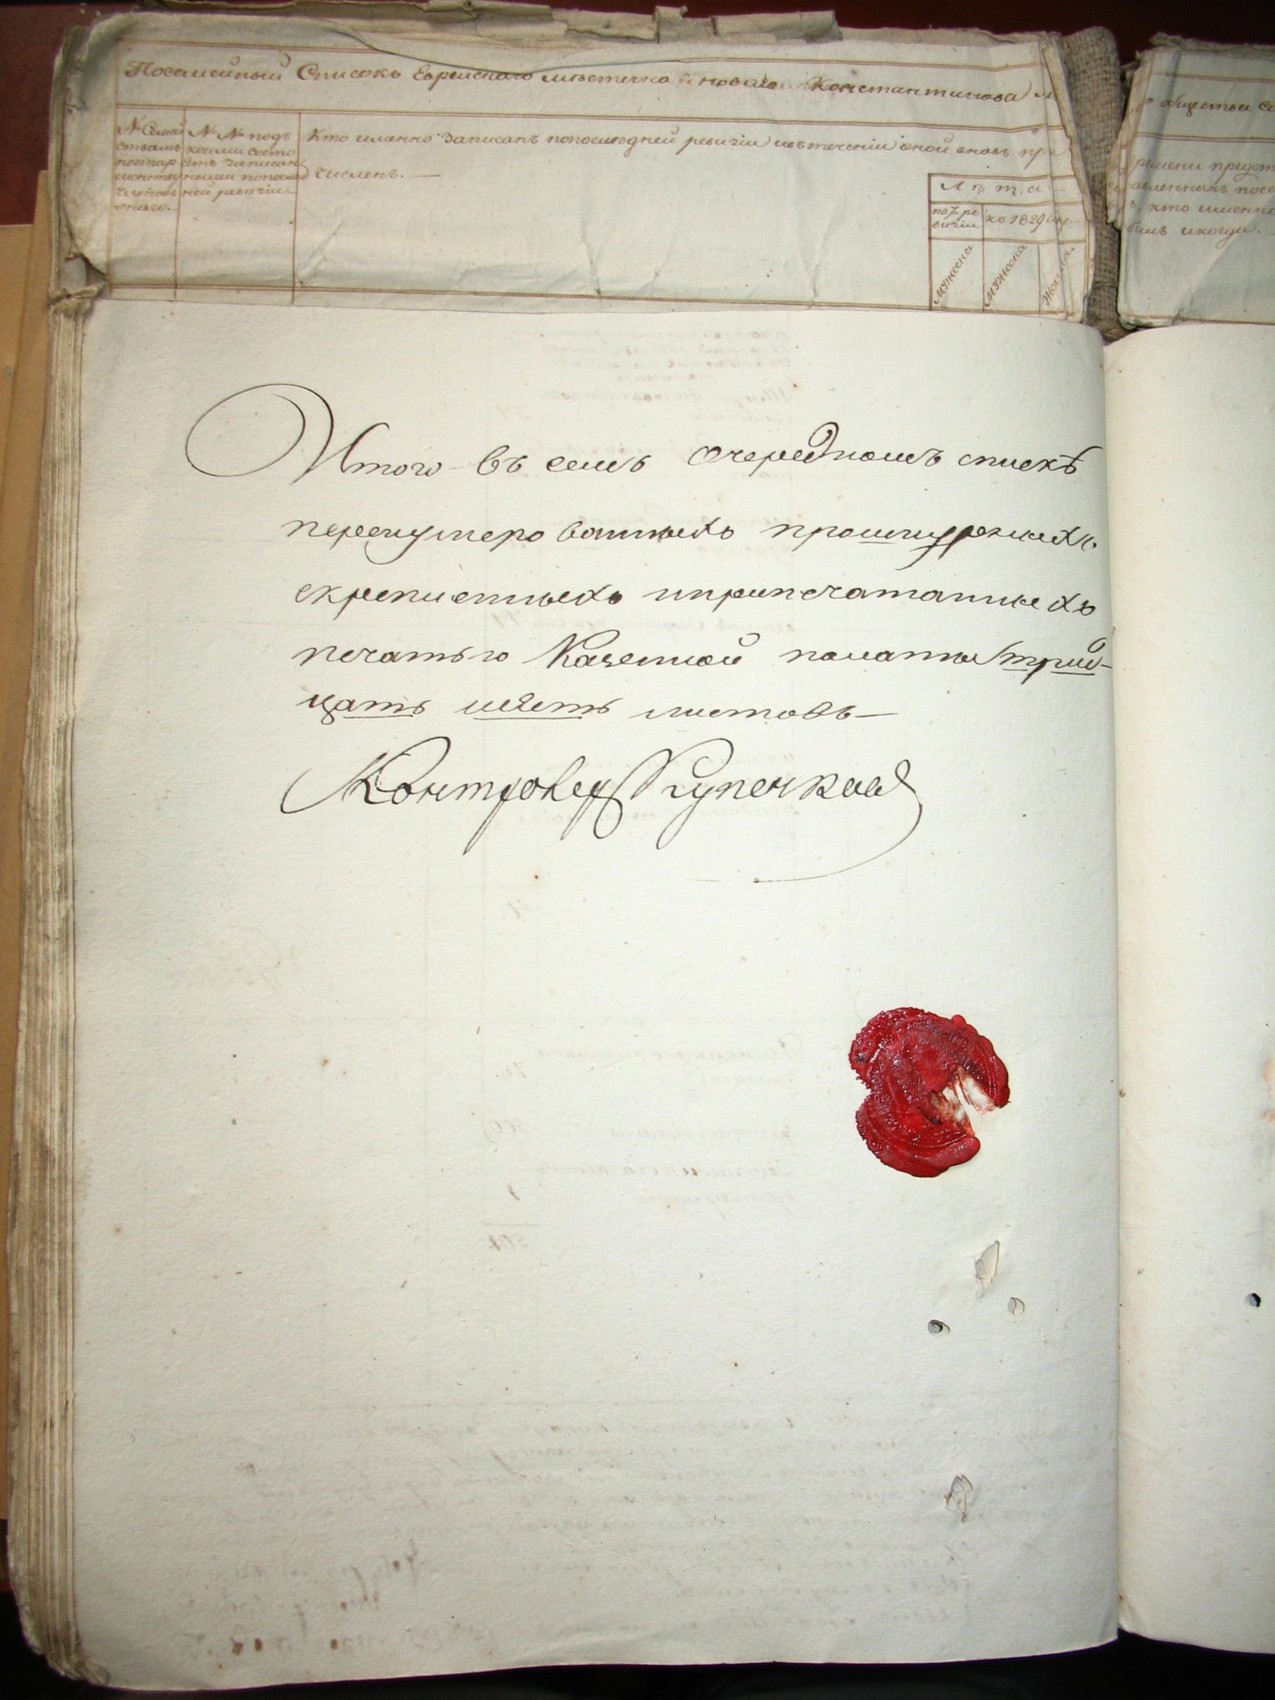 Посемейный Списокъ Еврейского мѣстечка новаго Константинова
№ Семей
№ № подъ
коими состо
ятъ записан
ными попослѣд
ней ревизіи
Кто именно записанъ попослѣдней ревизіи ивтеченіи оной вновь при
численъ.
Лѣта
по 7 ре
визіи
къ 1829 году
Мужеска
Мужеска
Женска
общества
кто именно
билъ икогда.
Итого въ семъ очередномъ спискѣ
перенумерованныхъ прошнурованныхъ
скрепленныхъ иприпечатанныхъ
печатью Казенной палаты трид-
цать шесть листовъ
Контролеръ Купецкой